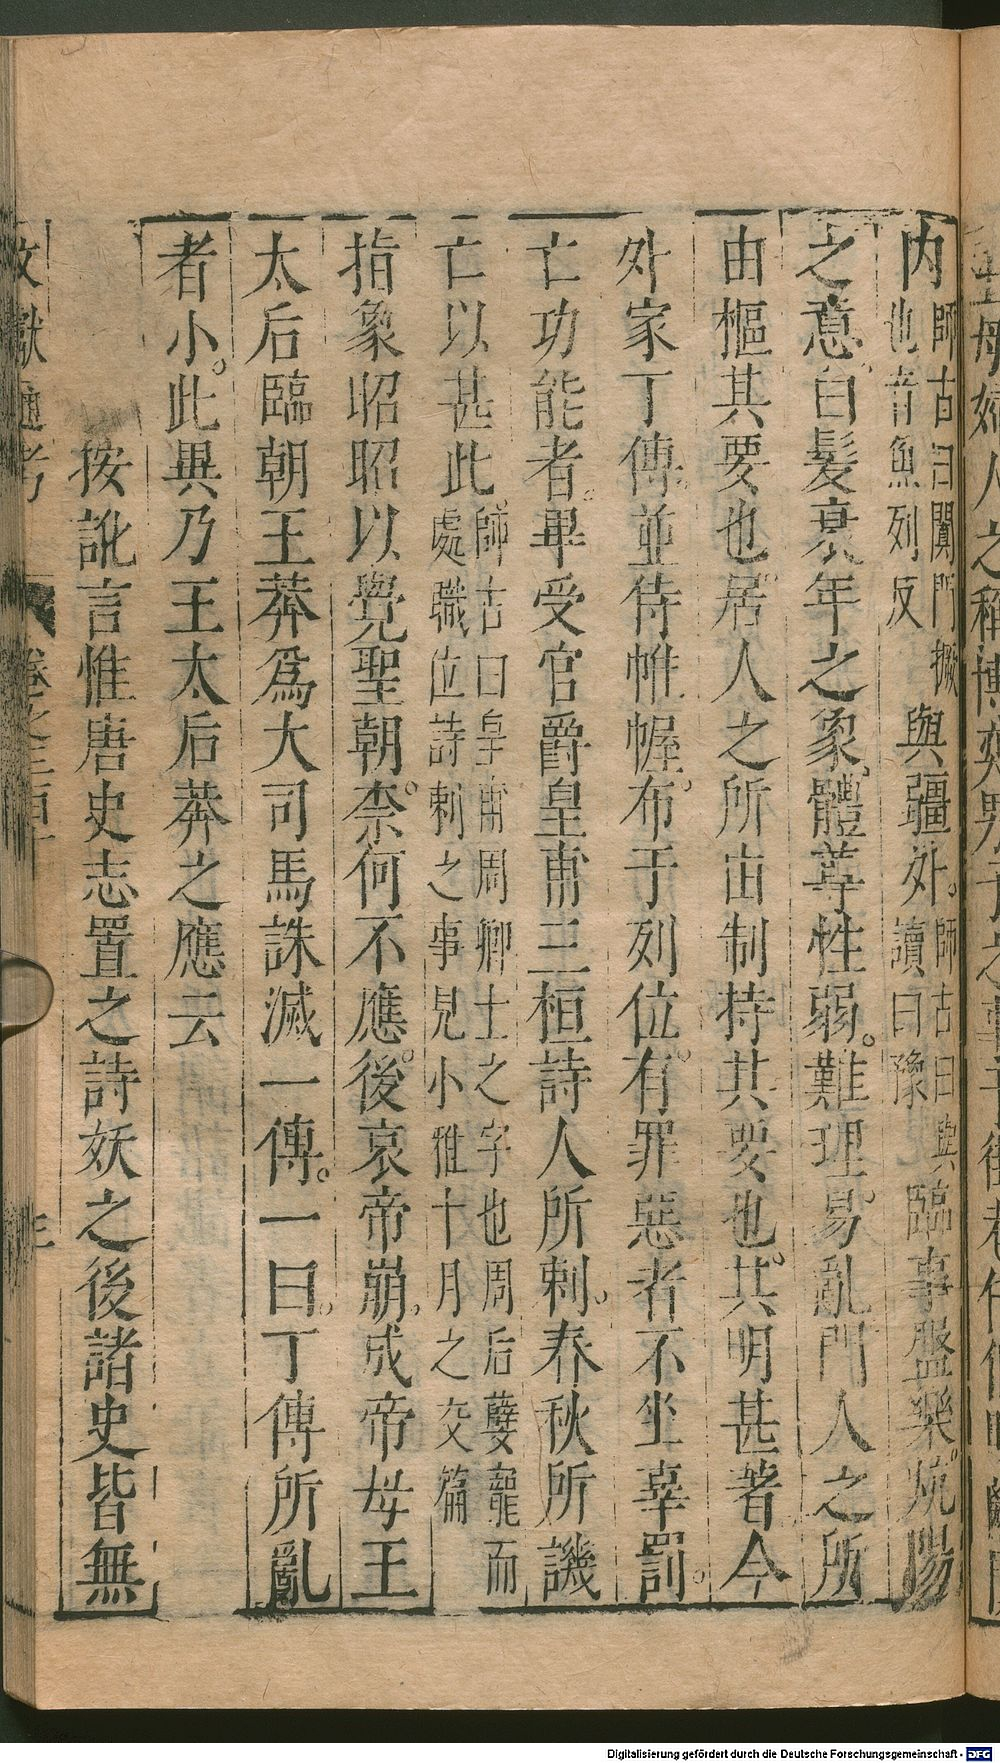 內師古曰闑門橛也音魚列反與疆外師古曰與讀曰豫臨事盤樂炕陽
之意白髮衰年之象體尊性弱難理易亂門人之所
由樞其要也居人之所由制持其要也其明甚著今
外家丁傅並侍帷幄布于列位有罪惡者不坐辜罰
亡功能者畢受官爵皇甫三桓詩人所刺春秋所譏
亡以甚此師古曰皇甫周卿士之字也周后嬖寵而處職位詩刺之事見小雅十月之交篇
指象昭昭以覺聖朝柰何不應後哀帝崩成帝母王
太后臨朝王莽爲大司馬誅滅丁傅一曰丁傅所亂
者小此異乃王太后莽之應云
按訛言惟唐史志置之詩妖之後諸史皆無
文獻通考 卷之三百十
Digitalisierung gefördert durch die Deutsche Forschungsgemeinschaft - DFG